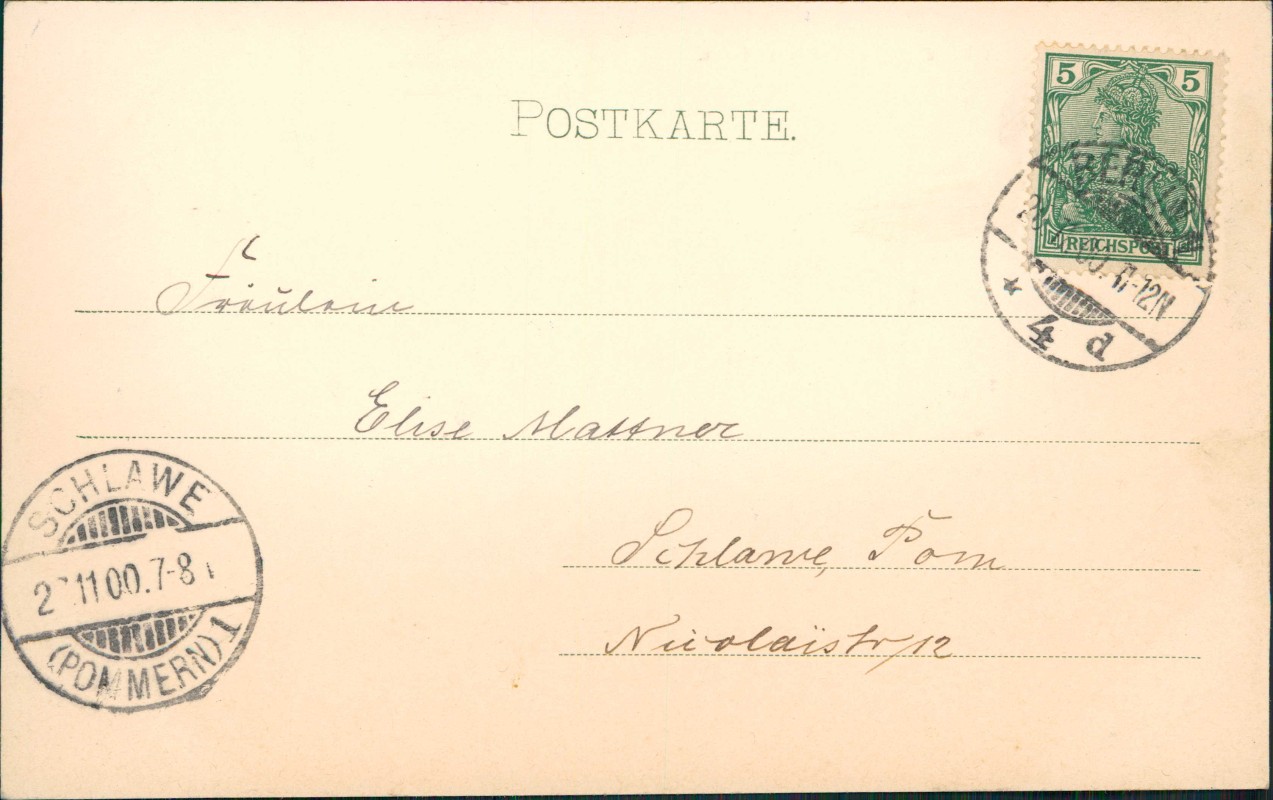 POSTKARTE.
5 5
REICHSPOST
BERLIN
00. 11-12N
* 4 d
Fräulein
Elise Mattner
Schlawe, Pom
Nicolaistr 12
SCHLAWE
11 00. 7-8
(POMMERN) 1